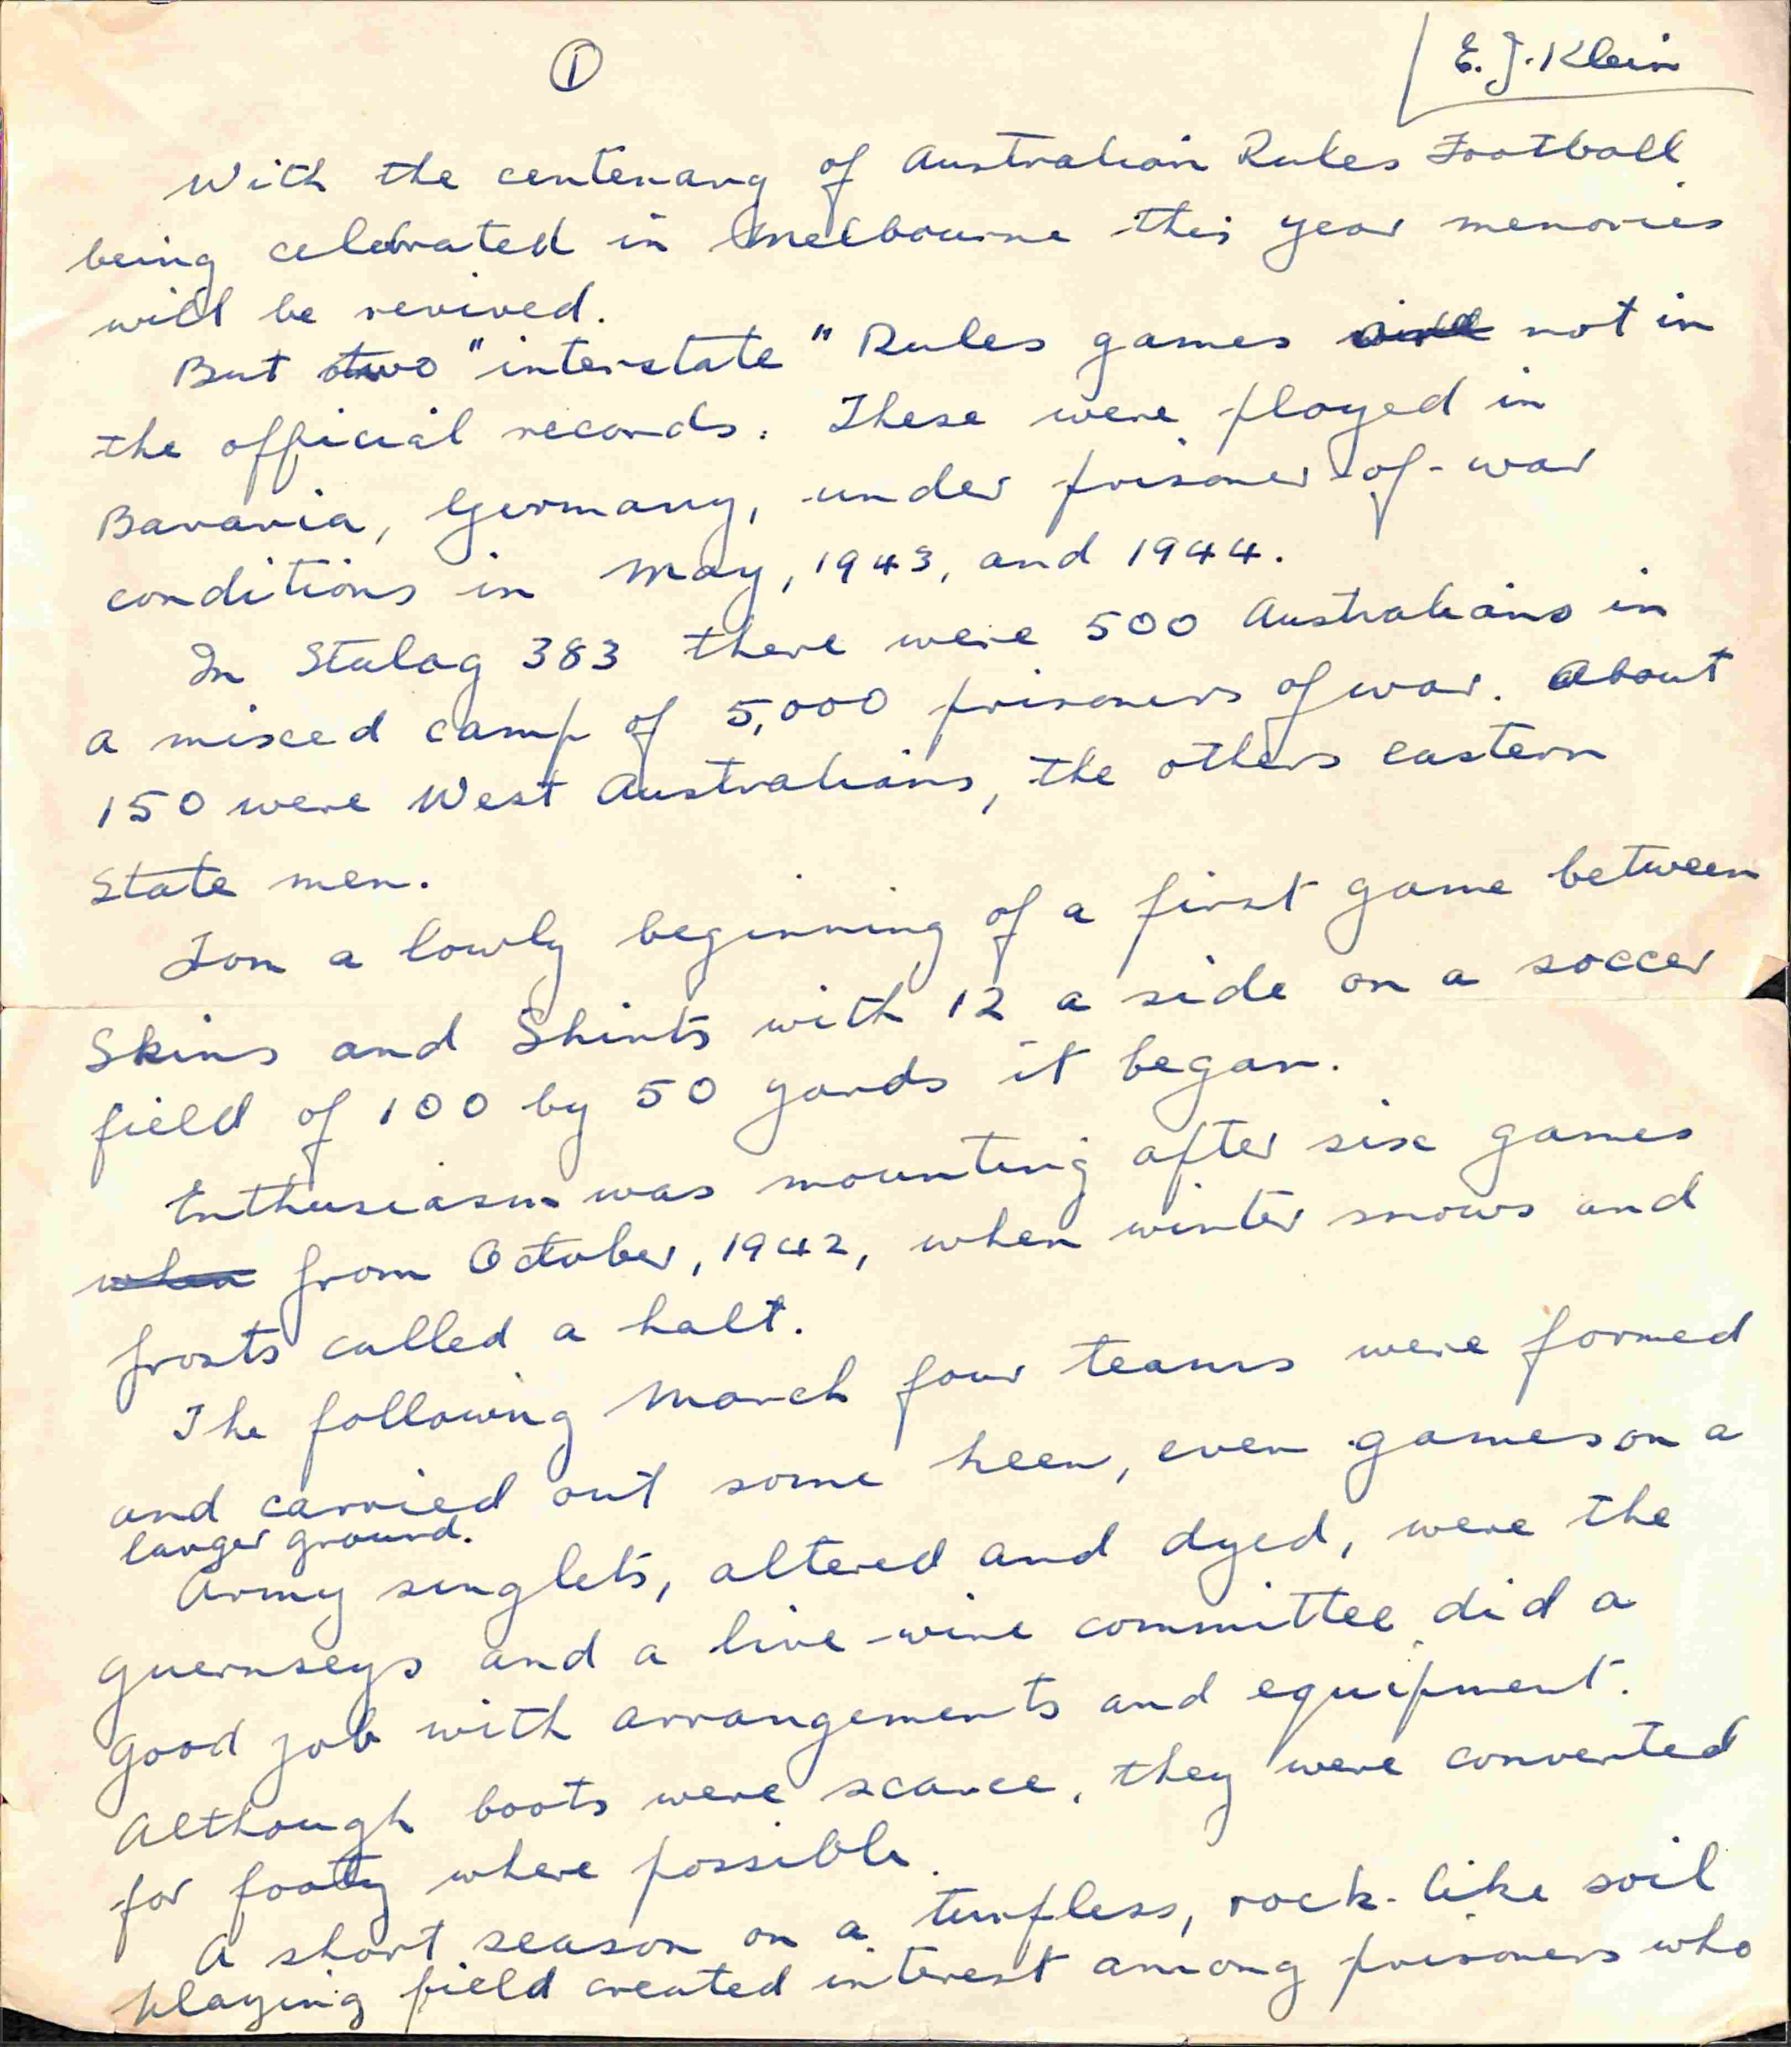 ①
E. J. Klein
With the centenary of Australian Rules Football
being celebrated in Melbourne this year memories
will be revived.
But two "interstate" Rules games not in
the official records. These were played in
Bavaria, Germany, under prisoner-of-war
conditions in May, 1943, and 1944.
In Stalag 383 there were 500 Australians in
a mixed camp of 5,000 prisoners of war. About
150 were West Australians, the others eastern
State men.
Fom a lowly beginning of a first game between
Skins and Shirts with 12 a side on a soccer
field of 100 by 50 yards it began.
Enthusiasm was mounting after six games
when from October, 1942, when winter snows and
frosts called a halt.
The following March four teams were formed
and carried out some keen, even games on a
larger ground.
Army singlets, altered and dyed, were the
guernseys and a live-wire committee did a
good job with arrangements and equipment.
Although boots were scarce, they were converted
for footy where possible.
A short season on a turfless, rock-like soil
playing field created interest among prisoners who